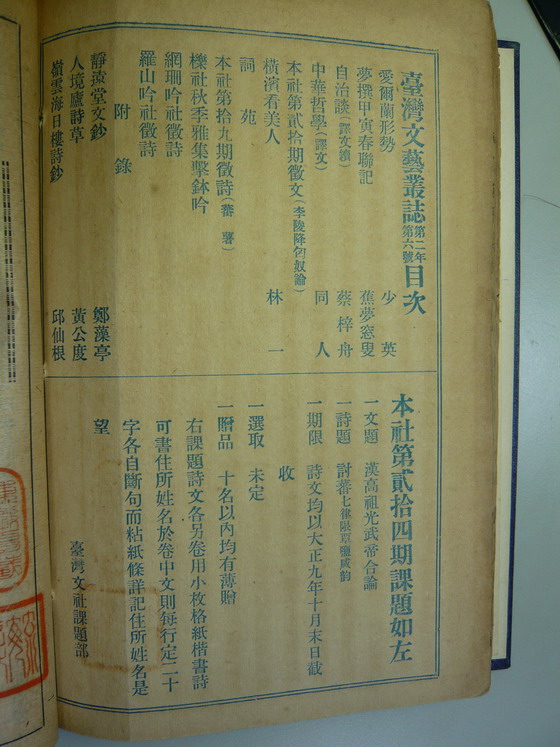 臺灣文藝叢誌第二年第六號目次
愛爾蘭形勢 少英
夢撰甲寅春聯記 蕉夢窓叟
自治談(譯文續) 蔡梓舟
中華哲學(譯文) 同人
本社第貳拾期徵文(李陵降匈奴論)
橫濱看美人 林一
詞苑
本社第拾九期徵詩(蕃薯)
櫟社秋季雅集擊鉢吟
網珊吟社徵詩
羅山吟社徵詩
附錄
靜遠堂文鈔 鄭藻亭
人境廬詩草 黃公度
嶺雲海日樓詩鈔 邱仙根
本社第貳拾四期課題如左
一文題 漢高祖光武帝合論
一詩題 討蕃七律限覃鹽咸韵
一期限 詩文均以大正九年十月末日截
收
一選取 未定
一贈品 十名以內均有薄贈
右課題詩文各另卷用小枚格紙楷書詩
可書住所姓名於卷中文則每行定二十
字各自斷句而粘紙條詳記住所姓名是
望
臺灣文社課題部